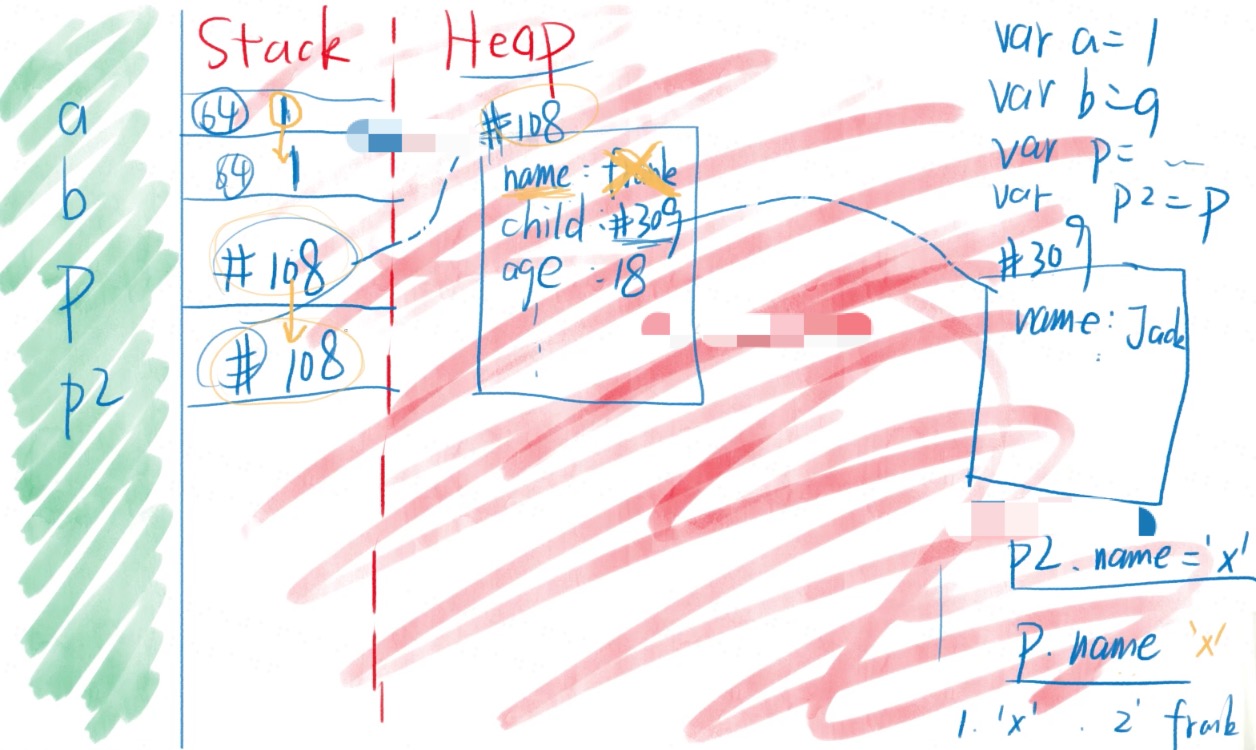 Stack
Heap
a
b
p
p2
64 1
64 1
#108
#108
#108
name: frank
child: #309
age: 18
var a=1
var b=a
var p=
var p2=p
#309
name: Jack
p2.name='x'
p.name 'x'
1. 'x' . 2' frank